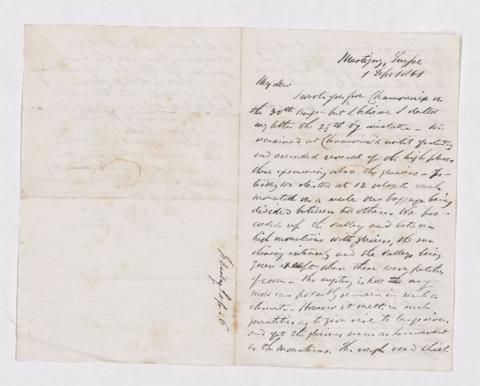 Martigny, Suisse
1 Sept 1841
My dear
I wrote you from Chamounix on
the 30th Aug - but I believe I dated
my letter the 29th by mistake - We
remained at Chamounix until yesterday
and ascended several of the high places
there upon among the glaciers - To
day we started at 12 o'clock each
mounted on a mule our baggage being
divided between two others. We
up the valley and between
high mountains with glaciers, the sun
shining intensely and the valleys being
green except when there were patches
of corn - the mystery is how any
can possibly remain in such a
climate. However it melts in such
quantities as to give rise to large rivers
and yet the glaciers seem as permanent
as the mountains. The rough road which